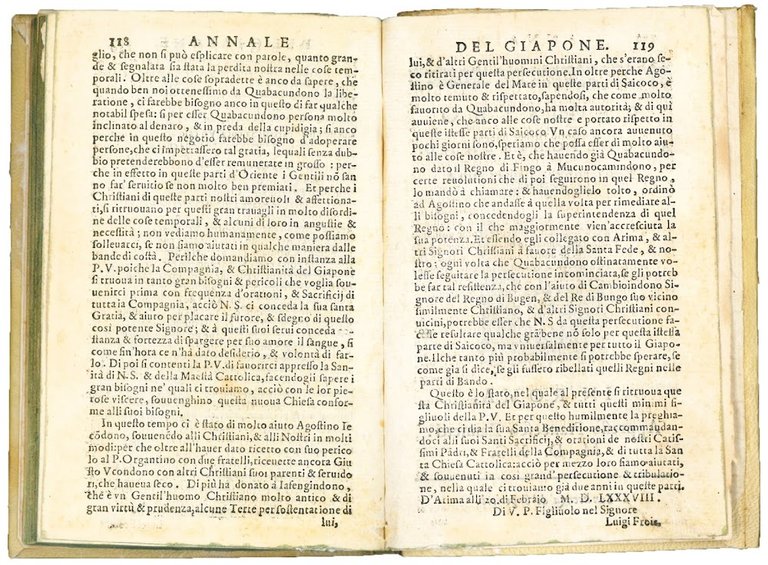 118 ANNALE
glio, che non si può esplicare con parole, quanto gran-
de & segnalata sia stata la perdita nostra nelle cose tem-
porali. Oltre alle cose sopradette è anco da sapere, che
quando ben noi ottenessimo da Quabacundono la libe-
ratione, ci sarebbe bisogno anco in questo di far qualche
notabil spesa; si per esser Quabacundono persona molto
inclinato al denaro, & in preda della cupidigia; si anco
perche in questo negotio sarebbe bisogno d'adoperare
persone, che ci impetrassero tal gratia, lequali senza dub-
bio pretenderebbono d'esser remunerate in grosso: per-
che in effetto in queste parti d'Oriente i Gentili nõ san
no far seruitio se non molto ben premiati. Et perche i
Christiani di queste parti nostri amoreuoli & affettiona-
ti, si ritruouano per questi gran trauagli in molto disordi-
ne delle cose temporali, & alcuni di loro in angustie &
necessità; non vediamo humanamente, come possiamo
solleuarci, se non siamo aiutati in qualche maniera dalle
bande di costà. Perilche domandiamo con instanza alla
P. V. poiche la Compagnia, & Christianità del Giapone
si truoua in tanto gran bisogni & pericoli che voglia sou-
uenirci prima con frequenza d'orationi, & Sacrificij di
tutta ia Compagnia, acciò N. S. ci conceda la sua santa
Gratia, & aiuto per placare il furore, & sdegno di questo
cosi potente Signore; & à questi suoi serui conceda con-
stanza & fortezza di spargere per suo amore il sangue, si
come sin'hora ce n'hà dato desiderio, & volontà di far-
lo. Di poi si contenti la P.V. di fauorirci appresso la San-
ità di N.S. & della Maestà Cattolica, facendogli sapere i
gran bisogni ne' quali ci trouiamo, acciò con le lor pie-
tose viscere, souuenghino questa nuoua Chiesa confor-
me alli suoi bisogni.
In questo tempo ci è stato di molto aiuto Agostino Ie
cõdono, souuenẽdo alli Christiani, & alli Nostri in molti
modi: per che oltre all'hauer dato ricetto con suo perico
lo al P. Organtino con due fratelli, riceuette ancora Giu
sto Vcondono con altri Christiani suoi parenti & seruido
ri, che haueua seco. Di più ha donato à Iafengindono,
che è vn Gentil'huomo Christiano molto antico & di
gran virtù, & prudenza, alcune Terre per sostentatione di
lui,
DEL GIAPONE. 119
lui, & d'altri Gentil'huomini Christiani, che s'erano se-
co ritirati per questa persecutione. In oltre perche Ago-
stino è Generale del Mare in queste parti di Saicoco, è
molto temuto & rispettato, sapendosi, che come molto
fauorito da Quabacundono, ha molta autorità; & di quì
auuiene, che anco alle cose nostre e portato rispetto in
queste istesse parti di Saicoco Vn caso ancora auuenuto
pochi giorni sono, speriamo che possa esser di molto aiu-
to alle cose nostre. Et è, che hauendo già Quabacundo-
no dato il Regno di Fingo à Mucunocamindono, per
certe reuolutioni che di poi segurono in quel Regno,
lo mandò à chiamare: & hauendoglielo tolto, ordinò
ad Agostino che andasse à quella volta per rimediare al-
li bisogni, concedendogli la superintendenza di quel
Regno: con il che maggiormente vien'accresciuta la
sua potenza. Et essendo egli collegato con Arima, & al-
tri Signori Christiani à fauore della Santa Fede, & no-
stro; ogni volta che Quabacundono ostinatamente vo-
lesse seguitare la persecutione incominciata, se gli potreb
be far tal resistenza, che con l'aiuto di Cambioindono Si-
gnore del Regno di Bugen, & del Re di Bungo suo vicino
similmente Christiano, & d'altri Signori Christiani con-
uicini, potrebbe esser che N.S da questa persecutione fa-
cesse resultare qualche grã bene nõ solo per questa istessa
parte di Saicoco, ma vniuersalmente per tutto il Giapo-
ne. Ilche tanto più probabilmente si potrebbe sperare, se
come già si dice, se gli fussero ribellati quelli Regni nelle
parti di Bando.
Questo è lo stato, nel quale al presente si ritroua que
sta Christianità del Giapone, & tutti questi minimi fi-
gliuoli della P.V. Et per questo humilmente la preghia-
mo, che ci dia la sua Santa Benedittione, raccommandan-
doci alli suoi Santi Sacrificij, & orationi de nostri Caris-
simi Padri, & Fratelli della Compagnia, & di tutta la San
ta Chiesa Cattolica: acciò per mezzo loro siamo aiutati,
& souuenuti in cosi grand' persecutione & tribulatio-
ne, nella quale ci trouiamo già due anni in queste parti.
D'Arima alli 20. di Febraio M. D. LXXXVIII.
Di V. P. Figliuolo nel Signore
Luigi Frois.